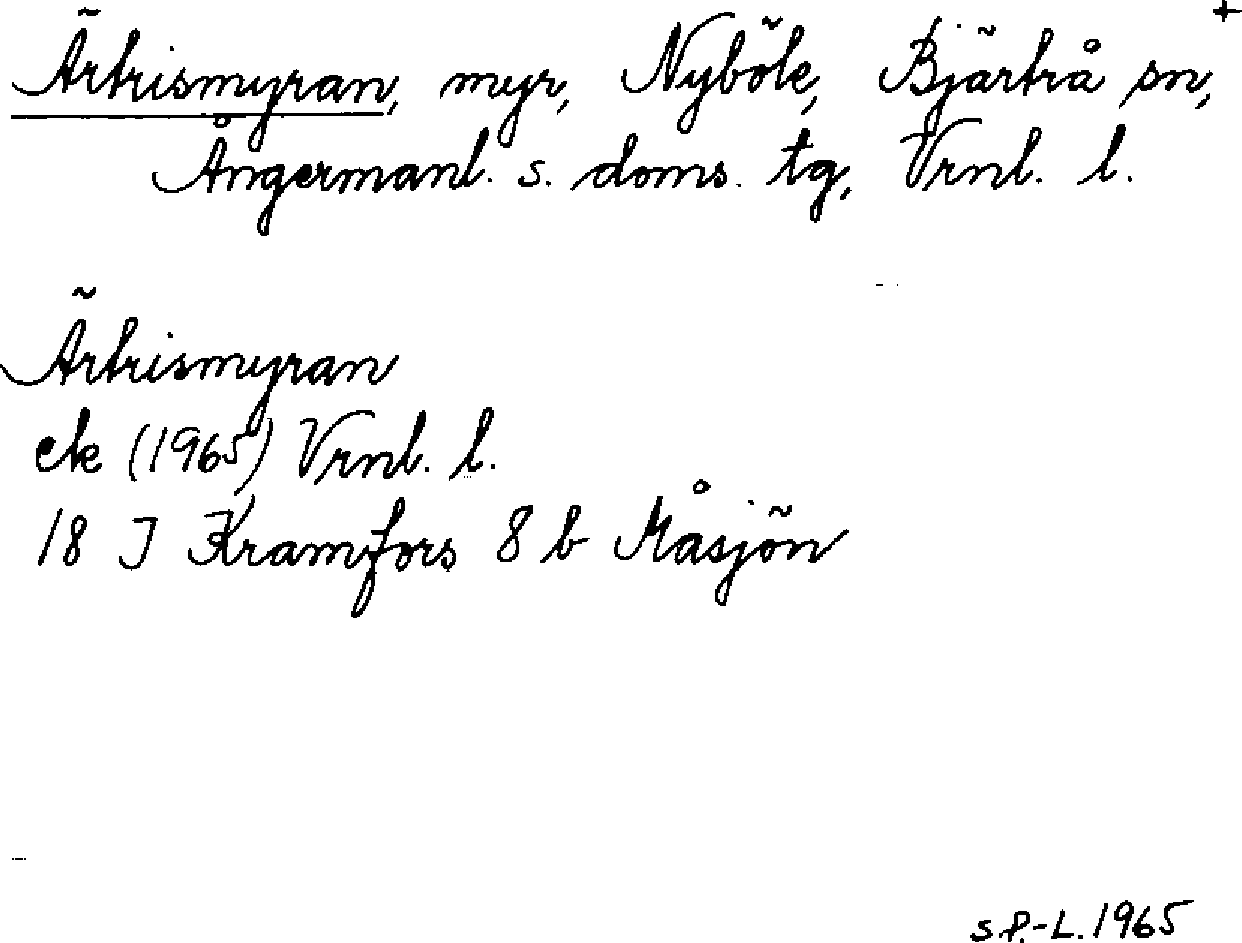 +
Ärtrismyran, myr, Nyböle, Bjärtrå sn,
Ångermanl. s. doms. tg, Vrnl. l.
Ärtrismyran
ek (1965) Vrnl. l.
18 J Kramfors 8 b Måsjön
s P.-L. 1965